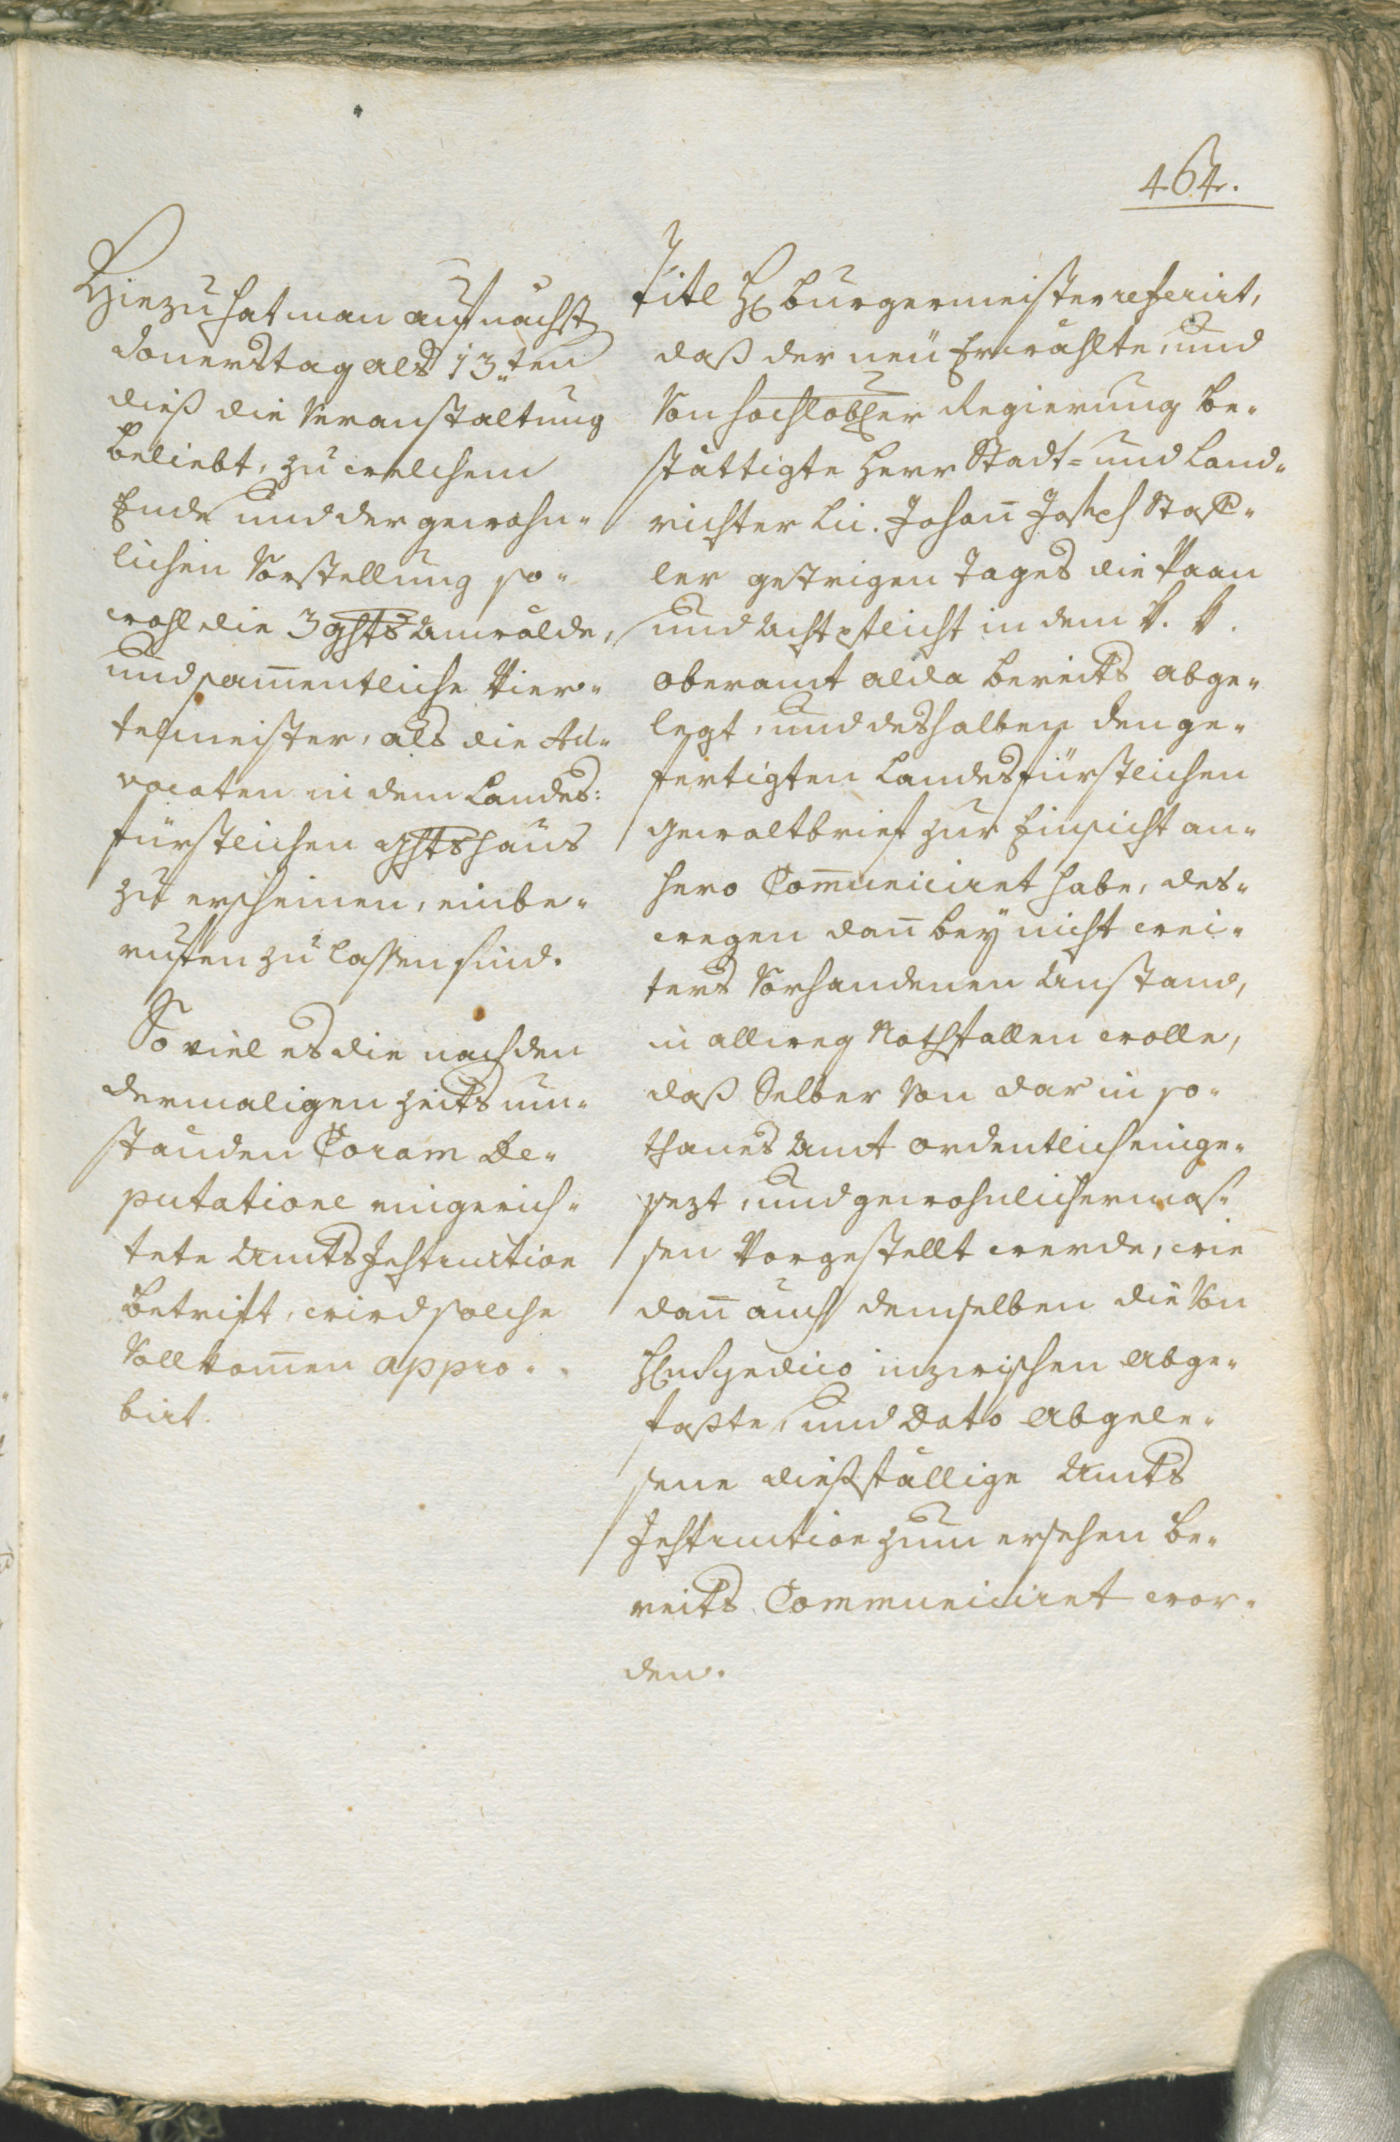 464.
Hiezu hat man auf nächst
donerstag als 13.ten
dieß die Veranstaltung
beliebt, zu welchem
Ende und der gewohn-
lichen Vorstellung so-
wohl die 3 ghts Anwälde,
und sam̅entliche Vier-
telmeister, als die Ad-
vocaten in dem Landes:
fürstlichen ghtshaus
zu erscheinen, einbe-
rufen zu lassen sind.
So viel es die nach den
dermaligen Zeits um-
ständen Coram De-
putatione eingerich-
tete Amts Instruction
betrift, wird solche
Vollkom̅en appro-
birt.
Titl H: burgermeister referirt,
daß der neü Erwählte, und
Von hochlobl:er Regierung be-
stättigte Herr Stadt- und Land-
richter Lic. Johan̅ Joseph Staf-
ler gestrigen Tages die Paan
und Achtpflicht in dem V. V.
oberamt alda bereits abge-
legt, und deshalben den ge-
fertigten Landesfürstlichen
gewaltbrief zur Einsicht an-
hero Com̅uniciret habe, des-
wegen dan̅ bey nicht wei-
ters Vorhandenen Anstand,
in allweg Nothfallen wolle,
daß Selber Von dar in so-
thanes Amt ordentlich einge-
sezt, und gewohnlichermas-
sen Vorgestellt werde, wie
dan̅ auch demselben die Von
H: Syndico inzwischen Abge-
faßte, und Dato Abgele-
sene dießfällige Amts
Instruction zum ersehen be-
reits Communiciret wor-
den.